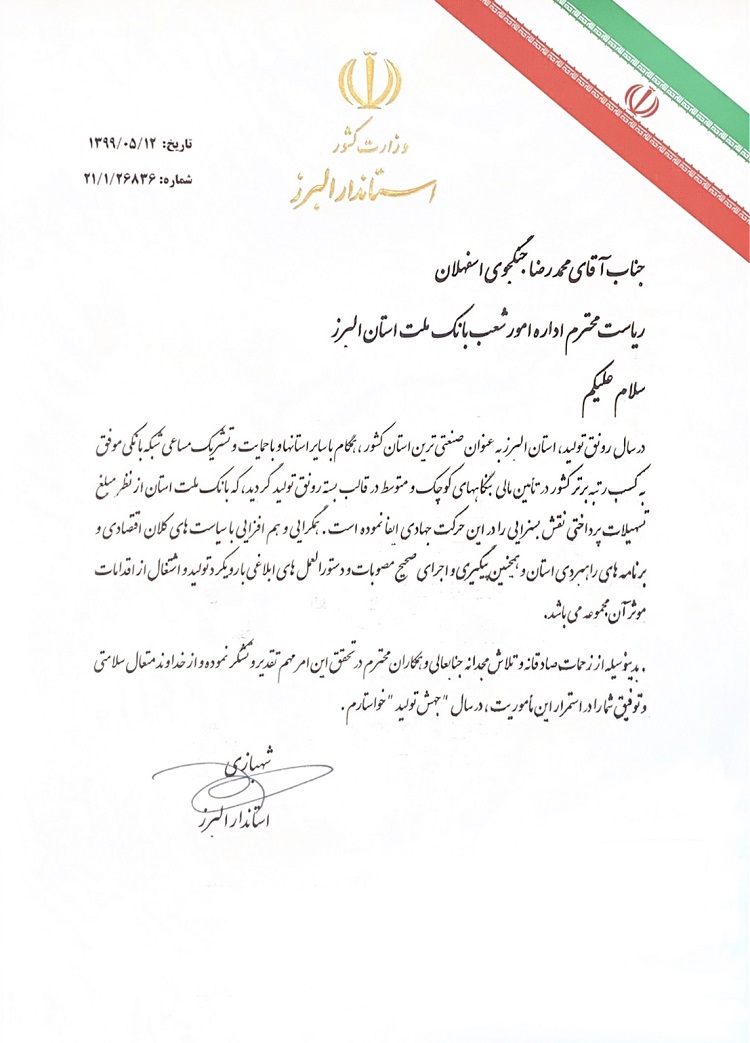 وزارت کشور
استاندار البرز
تاریخ: ۱۳۹۹/۰۵/۱۲
شماره: ۲۱/۱/۲۶۸۳۶
جناب آقای محمد رضا جنگجوی اسفهلان
ریاست محترم اداره امور شعب بانک ملت استان البرز
سلام علیکم
در سال رونق تولید، استان البرز به عنوان صنعتی ترین استان کشور، همگام با سایر استانها و با حمایت و تشریک مساعی شبکه بانکی موفق
به کسب رتبه برتر کشور در تأمین مالی بنگاههای کوچک و متوسط در قالب بسته رونق تولید گردید، که بانک ملت استان از نظر مبلغ
تسهیلات پرداختی نقش بسزایی را در این حرکت جهادی ایفا نموده است. همگرایی و هم افزایی با سیاست های کلان اقتصادی و
برنامه های راهبردی استان و همچنین پیگیری و اجرای صحیح مصوبات و دستورالعمل های ابلاغی با رویکرد تولید و اشتغال از اقدامات
موثر آن مجموعه می باشد.
. بدینوسیله از زحمات صادقانه و تلاش مجدانه جنابعالی و همکاران محترم در تحقق این امر مهم تقدیر و تشکر نموده و از خداوند متعال سلامتی
و توفیق شما را در استمرار این مأموریت، در سال "جهش تولید" خواستارم.
شهبازی
استاندار البرز